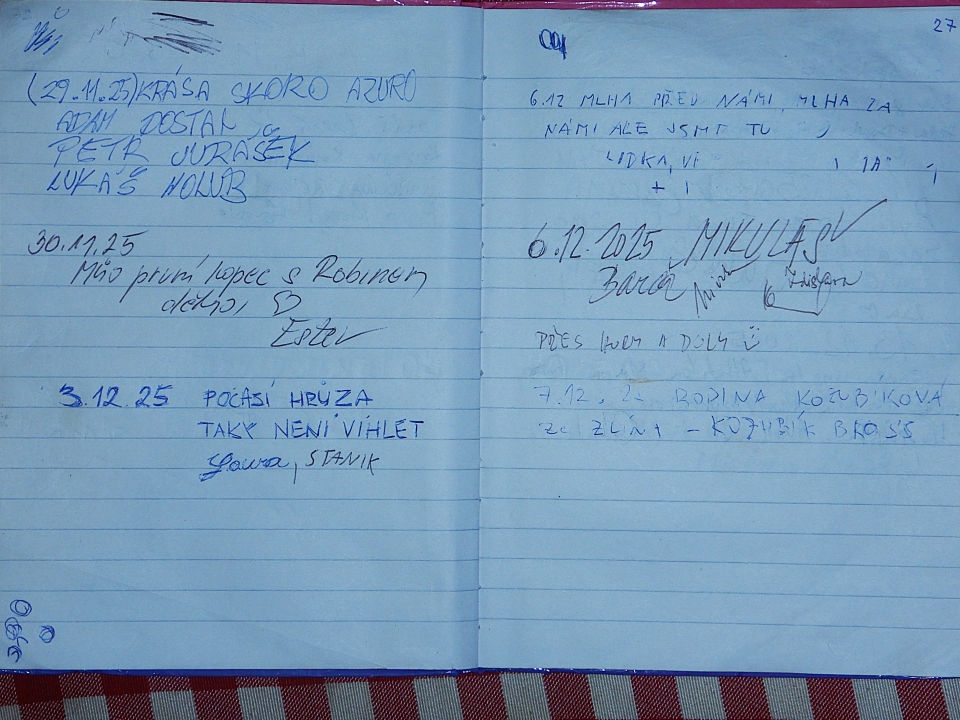 (29.11.25) KRÁSA SKORO AZURO
ADAM DOSTÁL
PETR JURÁŠEK
LUKÁŠ HOLUB
30.11.25
první kopec s Robinem
Ester
3.12.25 POČASÍ HRŮZA
TAKY NENÍ VIHLET
STANIK
27
6.12 MLHA PŘED NÁMI, MLHA ZA
NÁMI ALE JSME TU
LIDKA,
+ 1
6.12.2025 MIKULÁŠ
PŘES HORY A DOLY
7.12. RODINA KOZUBÍKOVÁ
ze ZLÍNA - KOZUBÍK BROSS